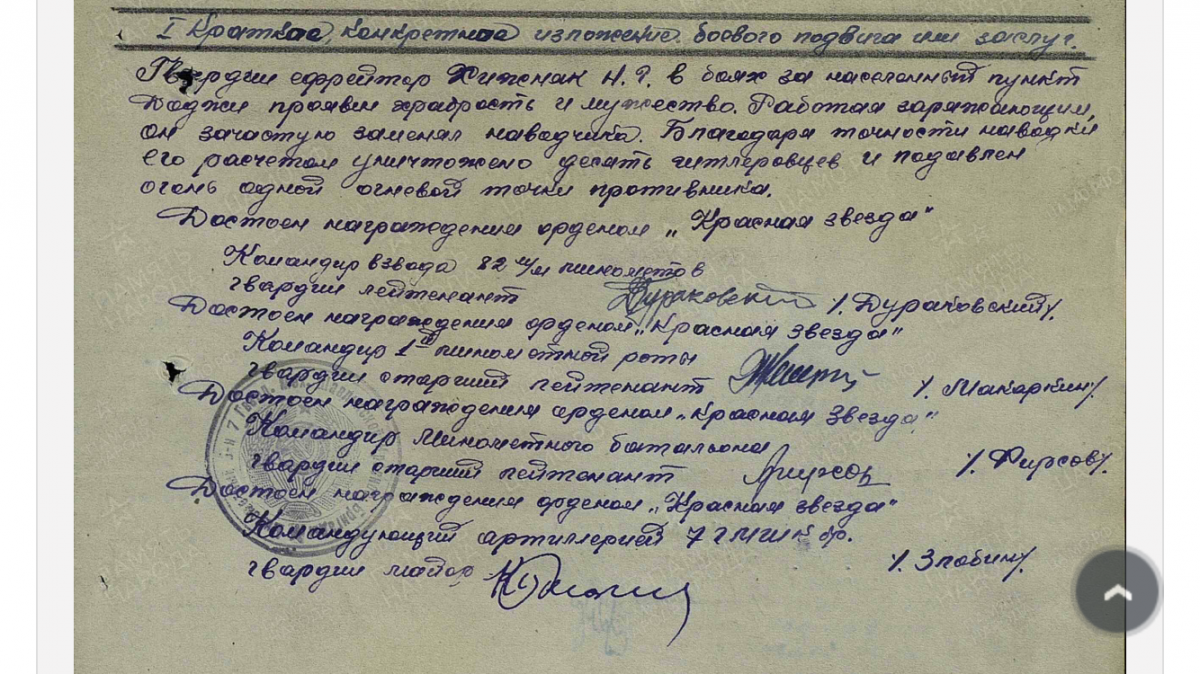 I Краткое, конкретное изложение боевого подвига или заслуг.
Гвардии ефрейтор Хижнак Н. Г. в боях за населенный пункт
проявил храбрость и мужество. Работая заряжающим,
он зачастую заменял наводчика. Благодаря точности наводки
его расчетом уничтожено десать гитлеровцев и подавлен
огонь одной огневой точки противника.
Достоен награждения орденом „Красная звезда"
Командир взвода 82 м/м минометов
гвардии лейтенант /Дураковский/.
Достоен награждения орденом „Красная звезда"
Командир 1й минометной роты
гвардии старший лейтенант /Макаркин/
Достоен награждения орденом „Красная Звезда"
Командир Минометного батальона
гвардии старший лейтенант /Фирсов/.
Достоен награждения орденом „Красная звезда"
Командующий артиллерией 7 ГМШКбр.
гвардии майор /Злобин/.